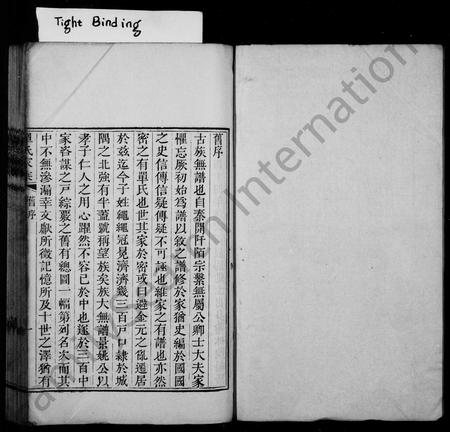 Tight Binding
舊序
古族無譜也自秦開阡陌宗繫無屬公卿士大夫家
懼忘厥初始為譜以敘之譜修於家猶史編於國國
之史信傳信疑傳疑不可誣也維家之有譜也亦然
密之有單氏也世其家於密或曰避金元之亂遷居
於茲迄今子姓繩繩冠冕濟濟幾三百戸口隸於城
隅之北強有半蓋號稱望族矣族大無譜景姚公以
孝子仁人之用心躍然不容已於中也遂於三百中
家咨謀之戸綜覈之舊有總圖一幅第列名次而其
中不無滲漏幸文獻所徵記憶所及十世之澤猶有
舊序
International